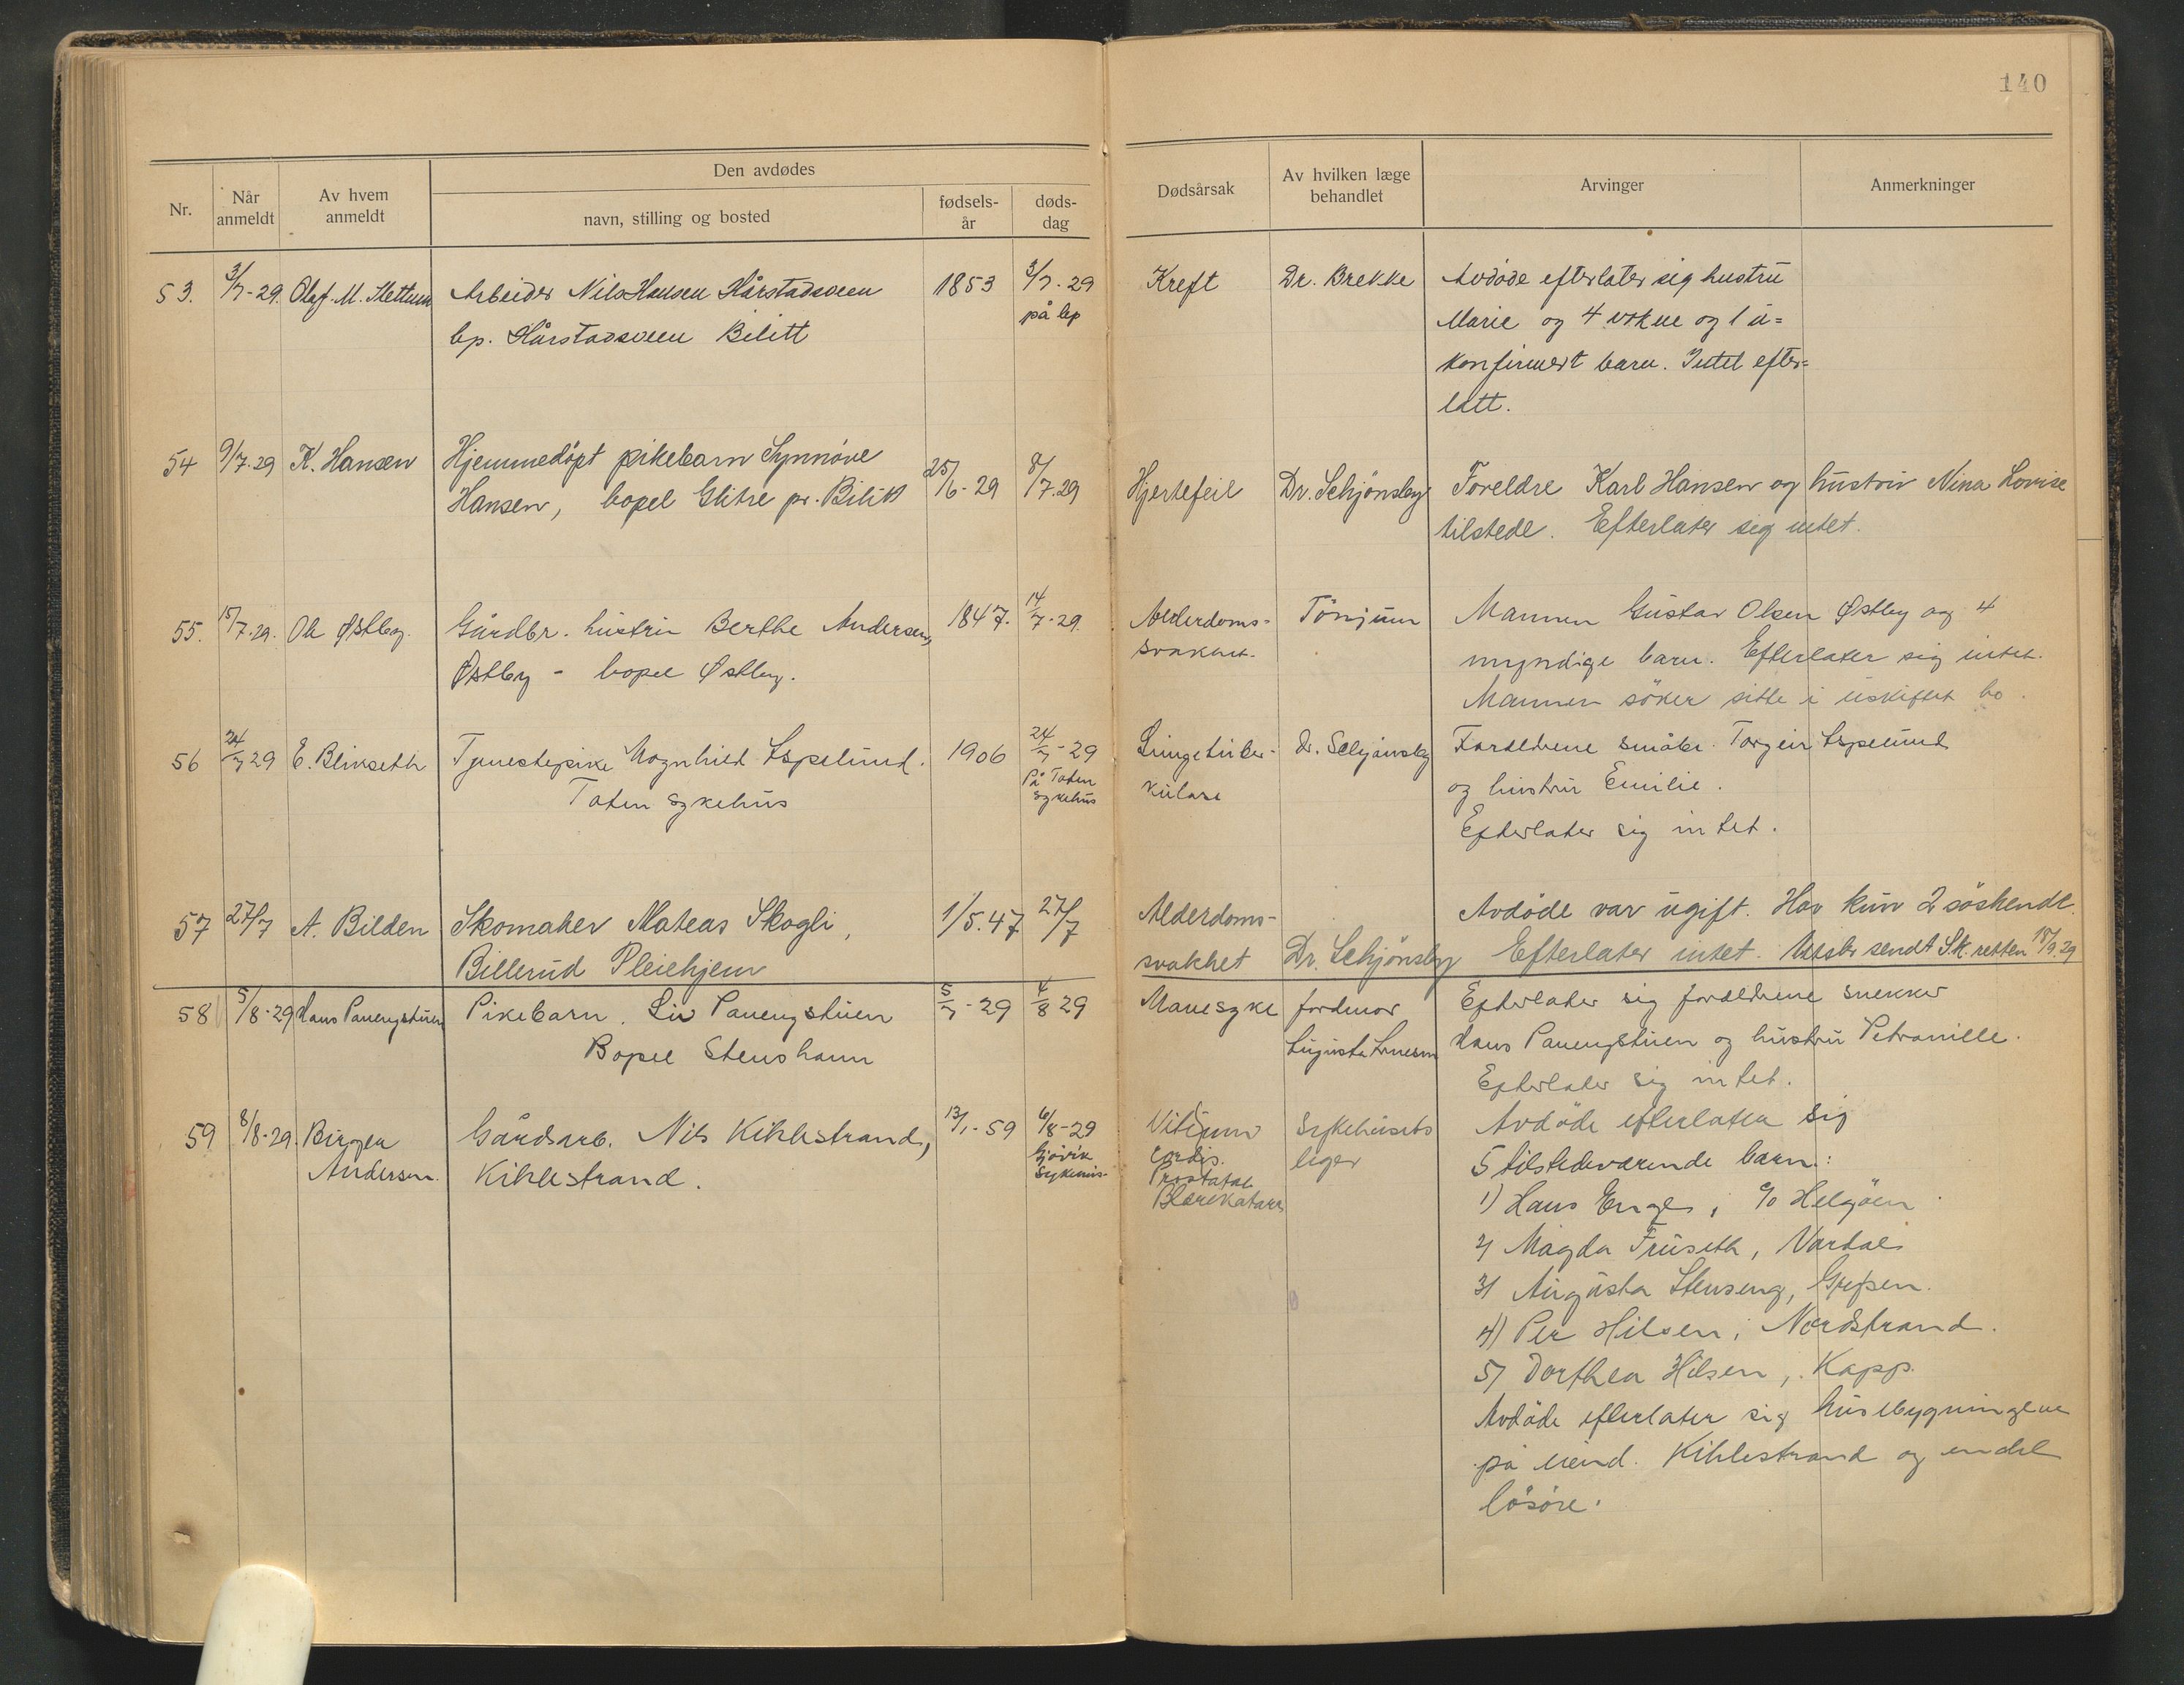 140
Den avdødes
Nr.
Når anmeldt
Av hvem anmeldt
navn, stilling og bosted
fødsels-år
døds-dag
Dødsårsak
Av hvilken læge behandlet
Arvinger
Anmerkninger
53. 3/7-29. Olaf M. Slettum Arbeider Nils Hansen Hårstadsveen 1853 3/7-29 Kreft Dr. Brekke Avdøde efterlater sig hustru
bp. Hårstadsveen Bilitt på bp Marie og 4 vokne og 1 u=
konfirmert barn. Intet efter=
latt.
54 9/7.29 K. Hansen Hjemmedøpt pikebarn Synnøve 25/6-29 8/7.29 Hjertefeil Dr. Schjønsby Foreldre Karl Hansen og hustru Nina Lovise
Hansen, bopel Glitre pr. Bilitt tilstede. Efterlater sig intet.
55. 15/7.29. Ole Østby. Gårdbr. hustru Berthe Andersen, 1847. 14/7-29. Alderdoms- Tönjum Mannen Gustav Olsen Østby og 4
Østby - bopel Østby. svakhet. myndige barn. Efterlater sig intet.
Mannen søker sitte i uskiftet bo.
56 24/7 29 E. Blikseth Tjenestepike Magnhild Espelund. 1906 24/7-29 Lungetuber- Dr. Schjønsby Foreldrene småbr. Torgeir Espelund
Toten sykehus På Toten sykehus kulose og hustru Emilie.
Efterlater sig intet.
57 27/7 A. Bilden Skomaker Mateas Skogli, 1/5.47 27/7 Alderdoms- Avdøde var ugift. Har kun 2 søskende.
Billerud Pleiehjem svakhet Dr. Schjønsby Efterlater intet. Utskr sendt Sk.retten 18/9.29
58 5/8-29 Hans Panengstuen Pikebarn. Liv Panengstuen 5/7-29 4/8 29 Mavesyke jordmor Efterlater sig foreldrene snekker
Bopel Stenshaun Hans Panengstuen og hustru Petronille.
Efterlater sig intet.
59 8/8-29. Birger Gårdsarb. Nils Kihlestrand, 13/1-59 6/8-29 Vitium Sykehusets Avdøde efterlater sig
Andersen. Kihlestrand. Gjøvik sykehus cordis. leger 5 tilstedeværende barn:
Prostatae
Blærekatarr 1) Hans Enger, c/o Helgøen
2) Magda Fruseth, Vardal
3) Augusta Stenseng, Grefsen.
4) Per Hilsen, Nordstrand.
5) Dorthea Hilsen, Kapp.
Avdøde efterlater sig husebygningene
på eiend. Kihlestrand og endel
løsøre.